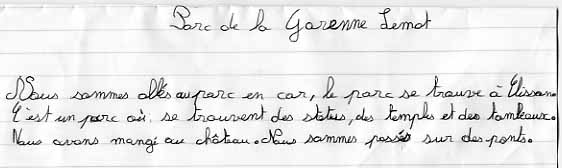 Parc de la Garenne Lemot
Nous sommes allés au parc en car, le parc se trouve à Clisson.
C'est un parc où se trouvent des status, des temples et des tombeaux.
Nous avons mangé au château. Nous sommes passés sur des ponts.